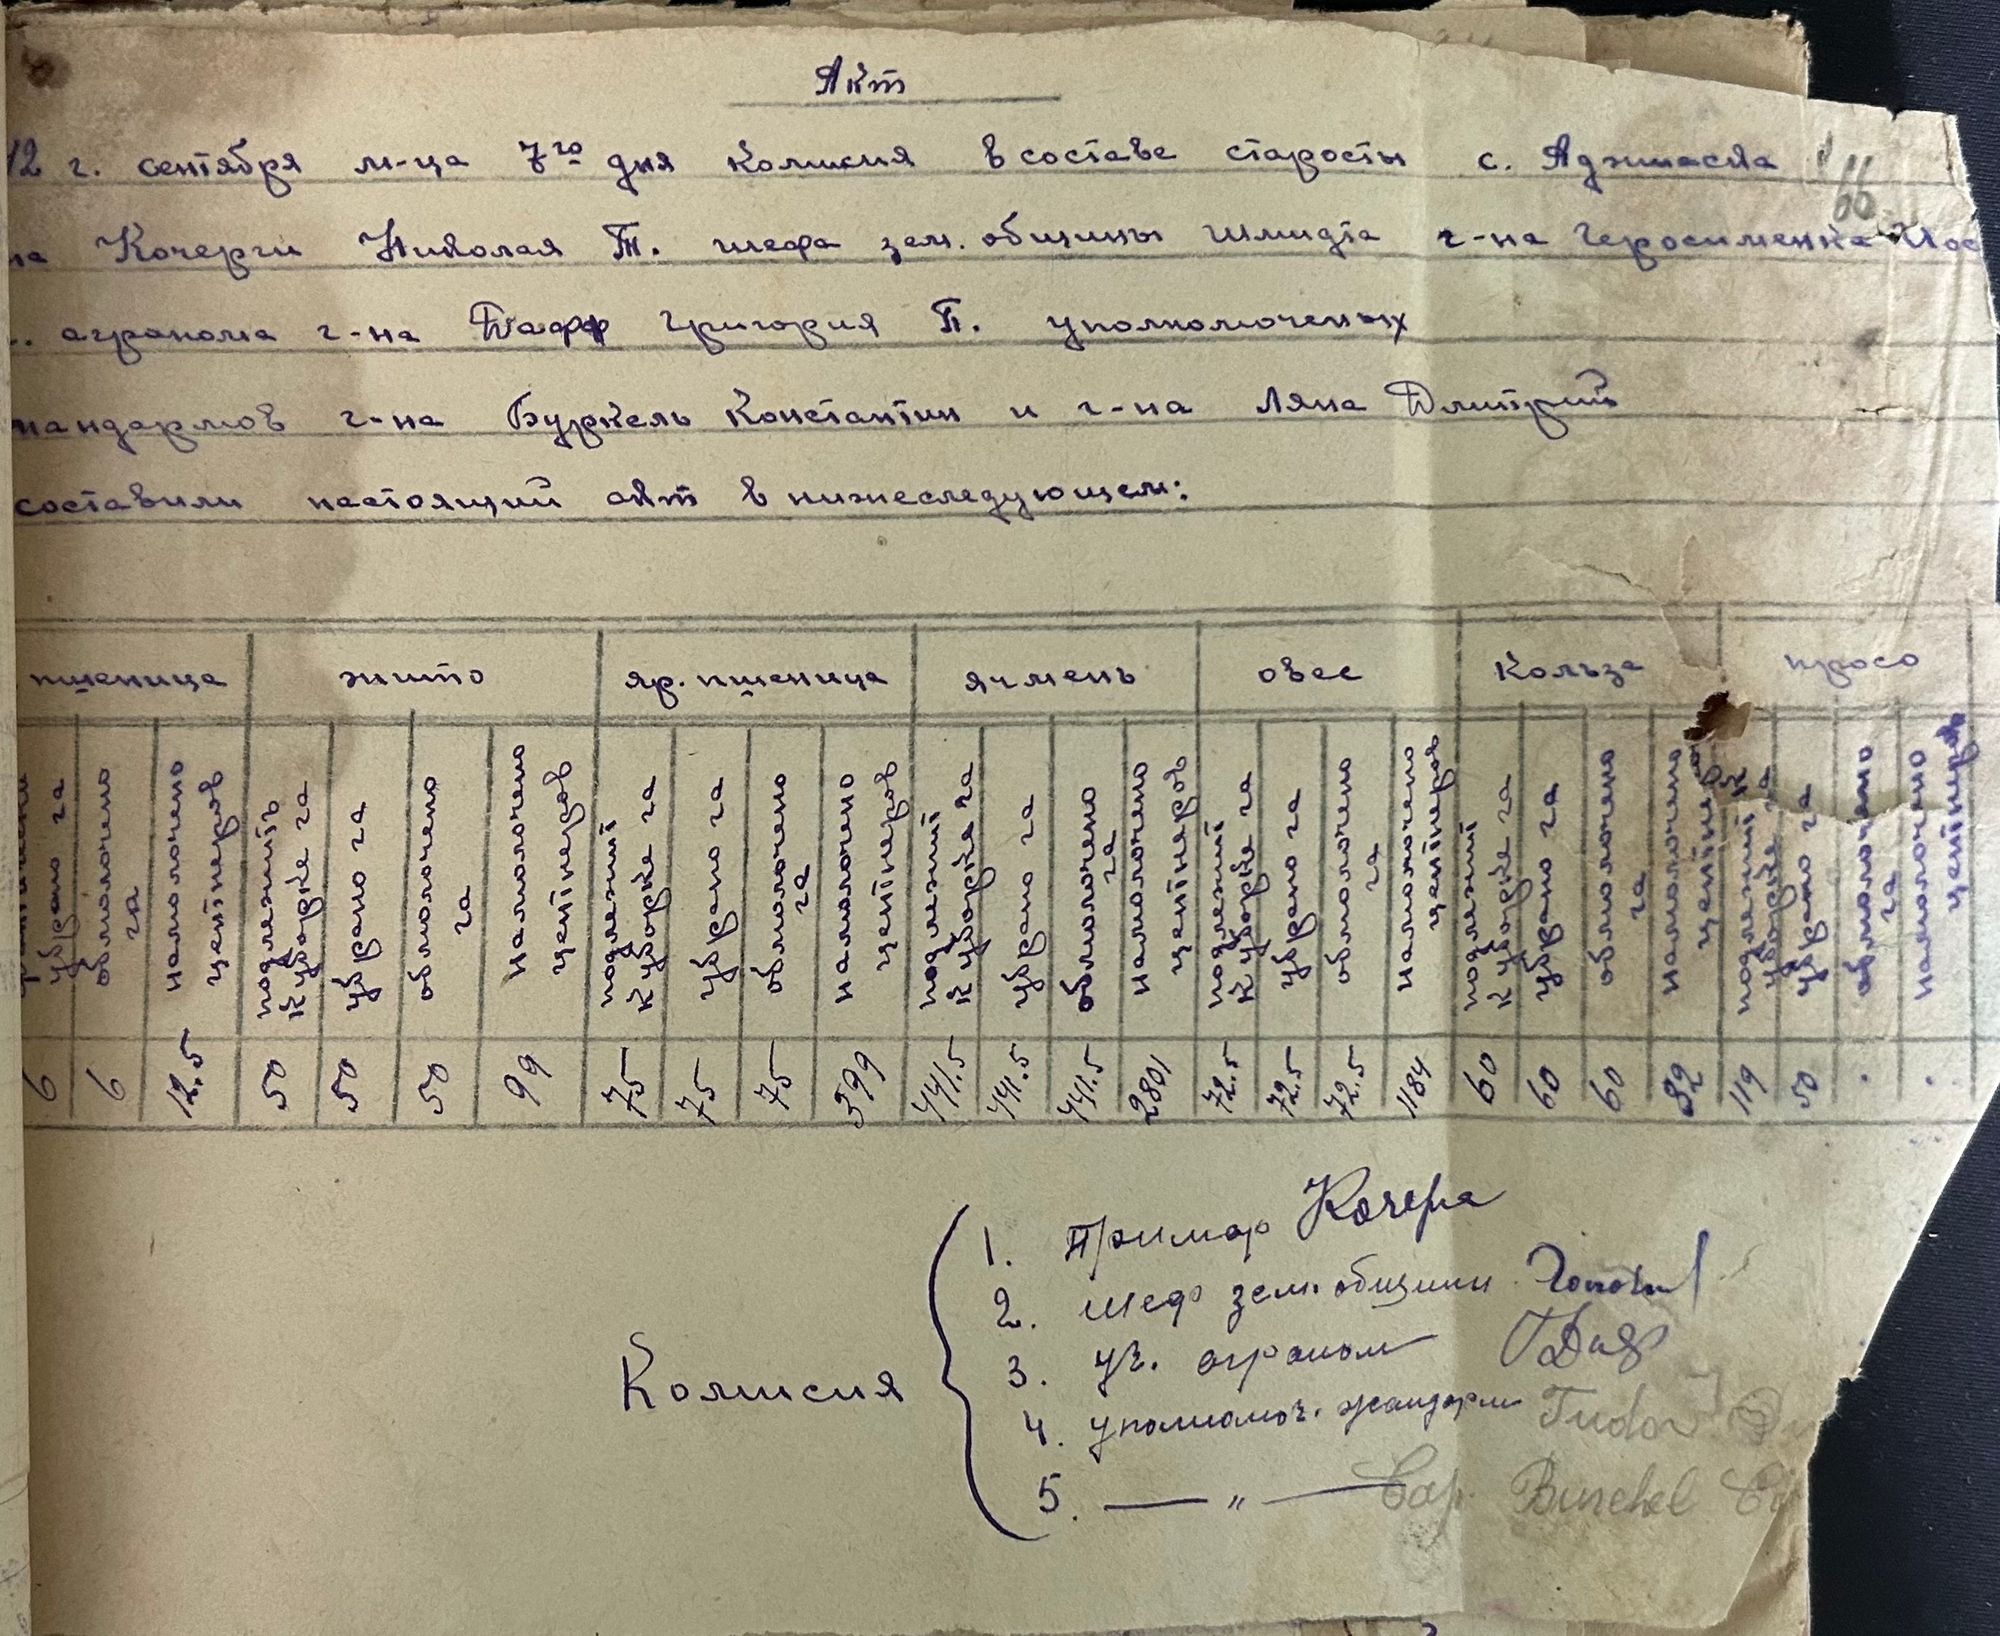 Акт
12 г. сентября м-ца 7го дня комисия в составе старосты с. Аджиаска
на Кочерги Николая Т. шефа зем. общины Шмидта г-на Геросименка Иос
агранома г-на Дафф Григория П. уполномоченых
жандармов г-на Буркель Константин и г-на Ляпа Дмитрий
составили настоящий акт в нижеследующем:
пшеница жито яр. пшеница ячмень овес кольза просо
убрано га обмолочено га намолочено центнеров подлежить к уборке га убрано га обмолочено га намолочено центнеров подлежит к уборке га убрано га обмолочено га намолочено центнеров подлежит к уборке га убрано га обмолочено га намолочено центнеров подлежит к уборке га убрано га обмолочено га намолочено центнеров подлежит к уборке га убрано га обмолочено га намолочено центнеров подлежит к уборке га убрано га обмолочено га намолочено центнеров
6 6 12.5 50 50 50 99 75 75 75 599 441.5 441.5 441.5 2801 72.5 72.5 72.5 1184 60 60 60 92 119 50 . .
Комисия
1. Примар Кочерга
2. шеф зем. общини
3. уч. аграном
4. уполномоч. жандарм Tudor
5. — " — Cap. Burchel
66